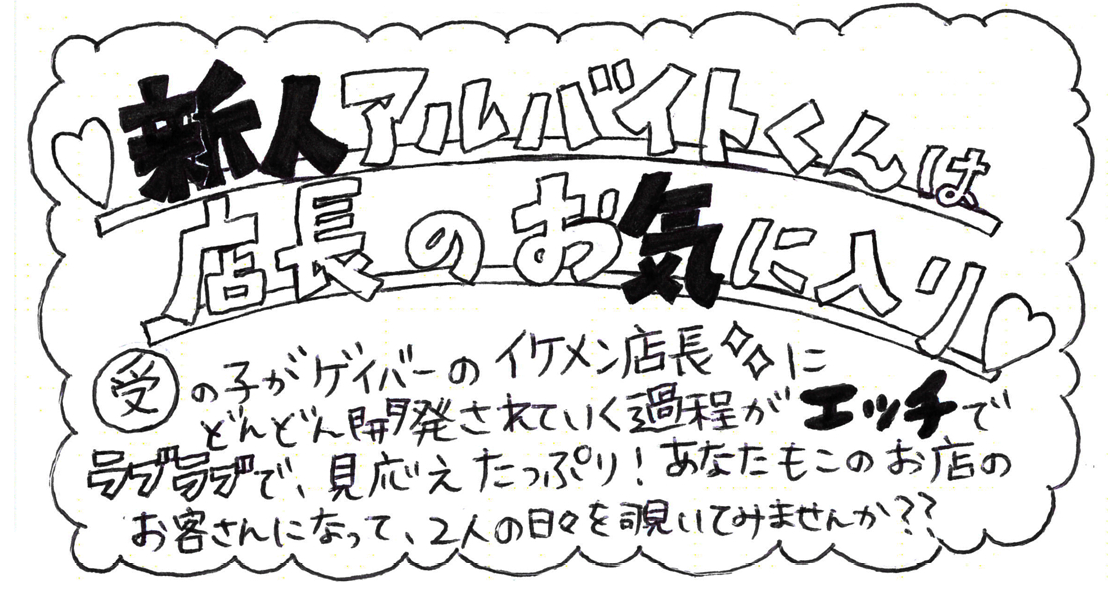 新人アルバイトくんは
店長のお気に入り
受の子がゲイバーのイケメン店長に
どんどん開発されていく過程がエッチで
ラブラブで、見応えたっぷり！あなたもこのお店の
お客さんになって、2人の日々を覗いてみませんか??